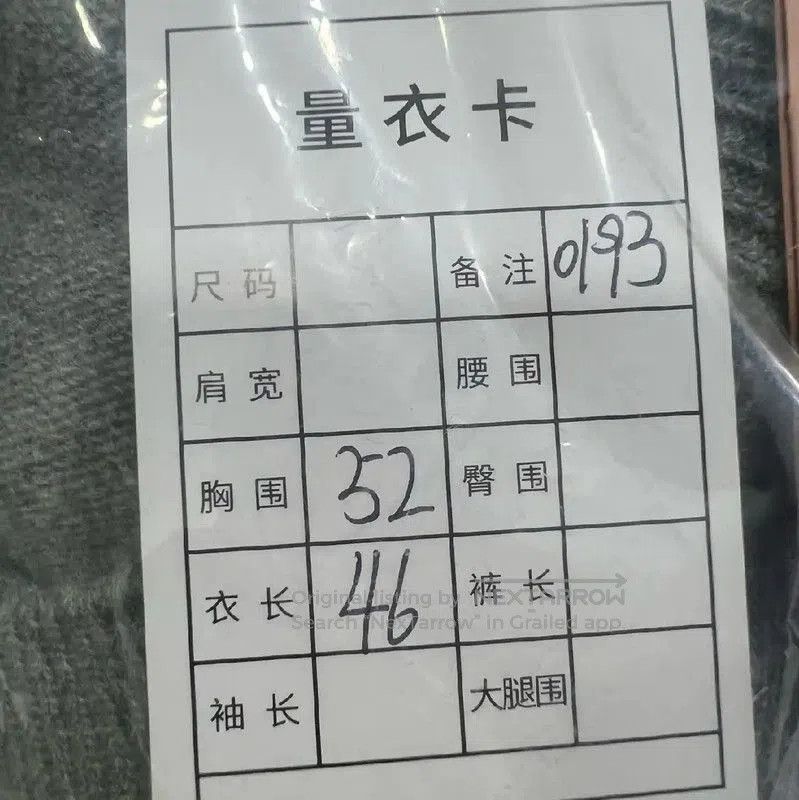 量衣卡
尺码 备注 0193
肩宽 腰围
胸围 52 臀围
衣长 46 裤长
Original listing by NEXTARROW
Search "NexTarrow" in Grailed app
袖长 大腿围